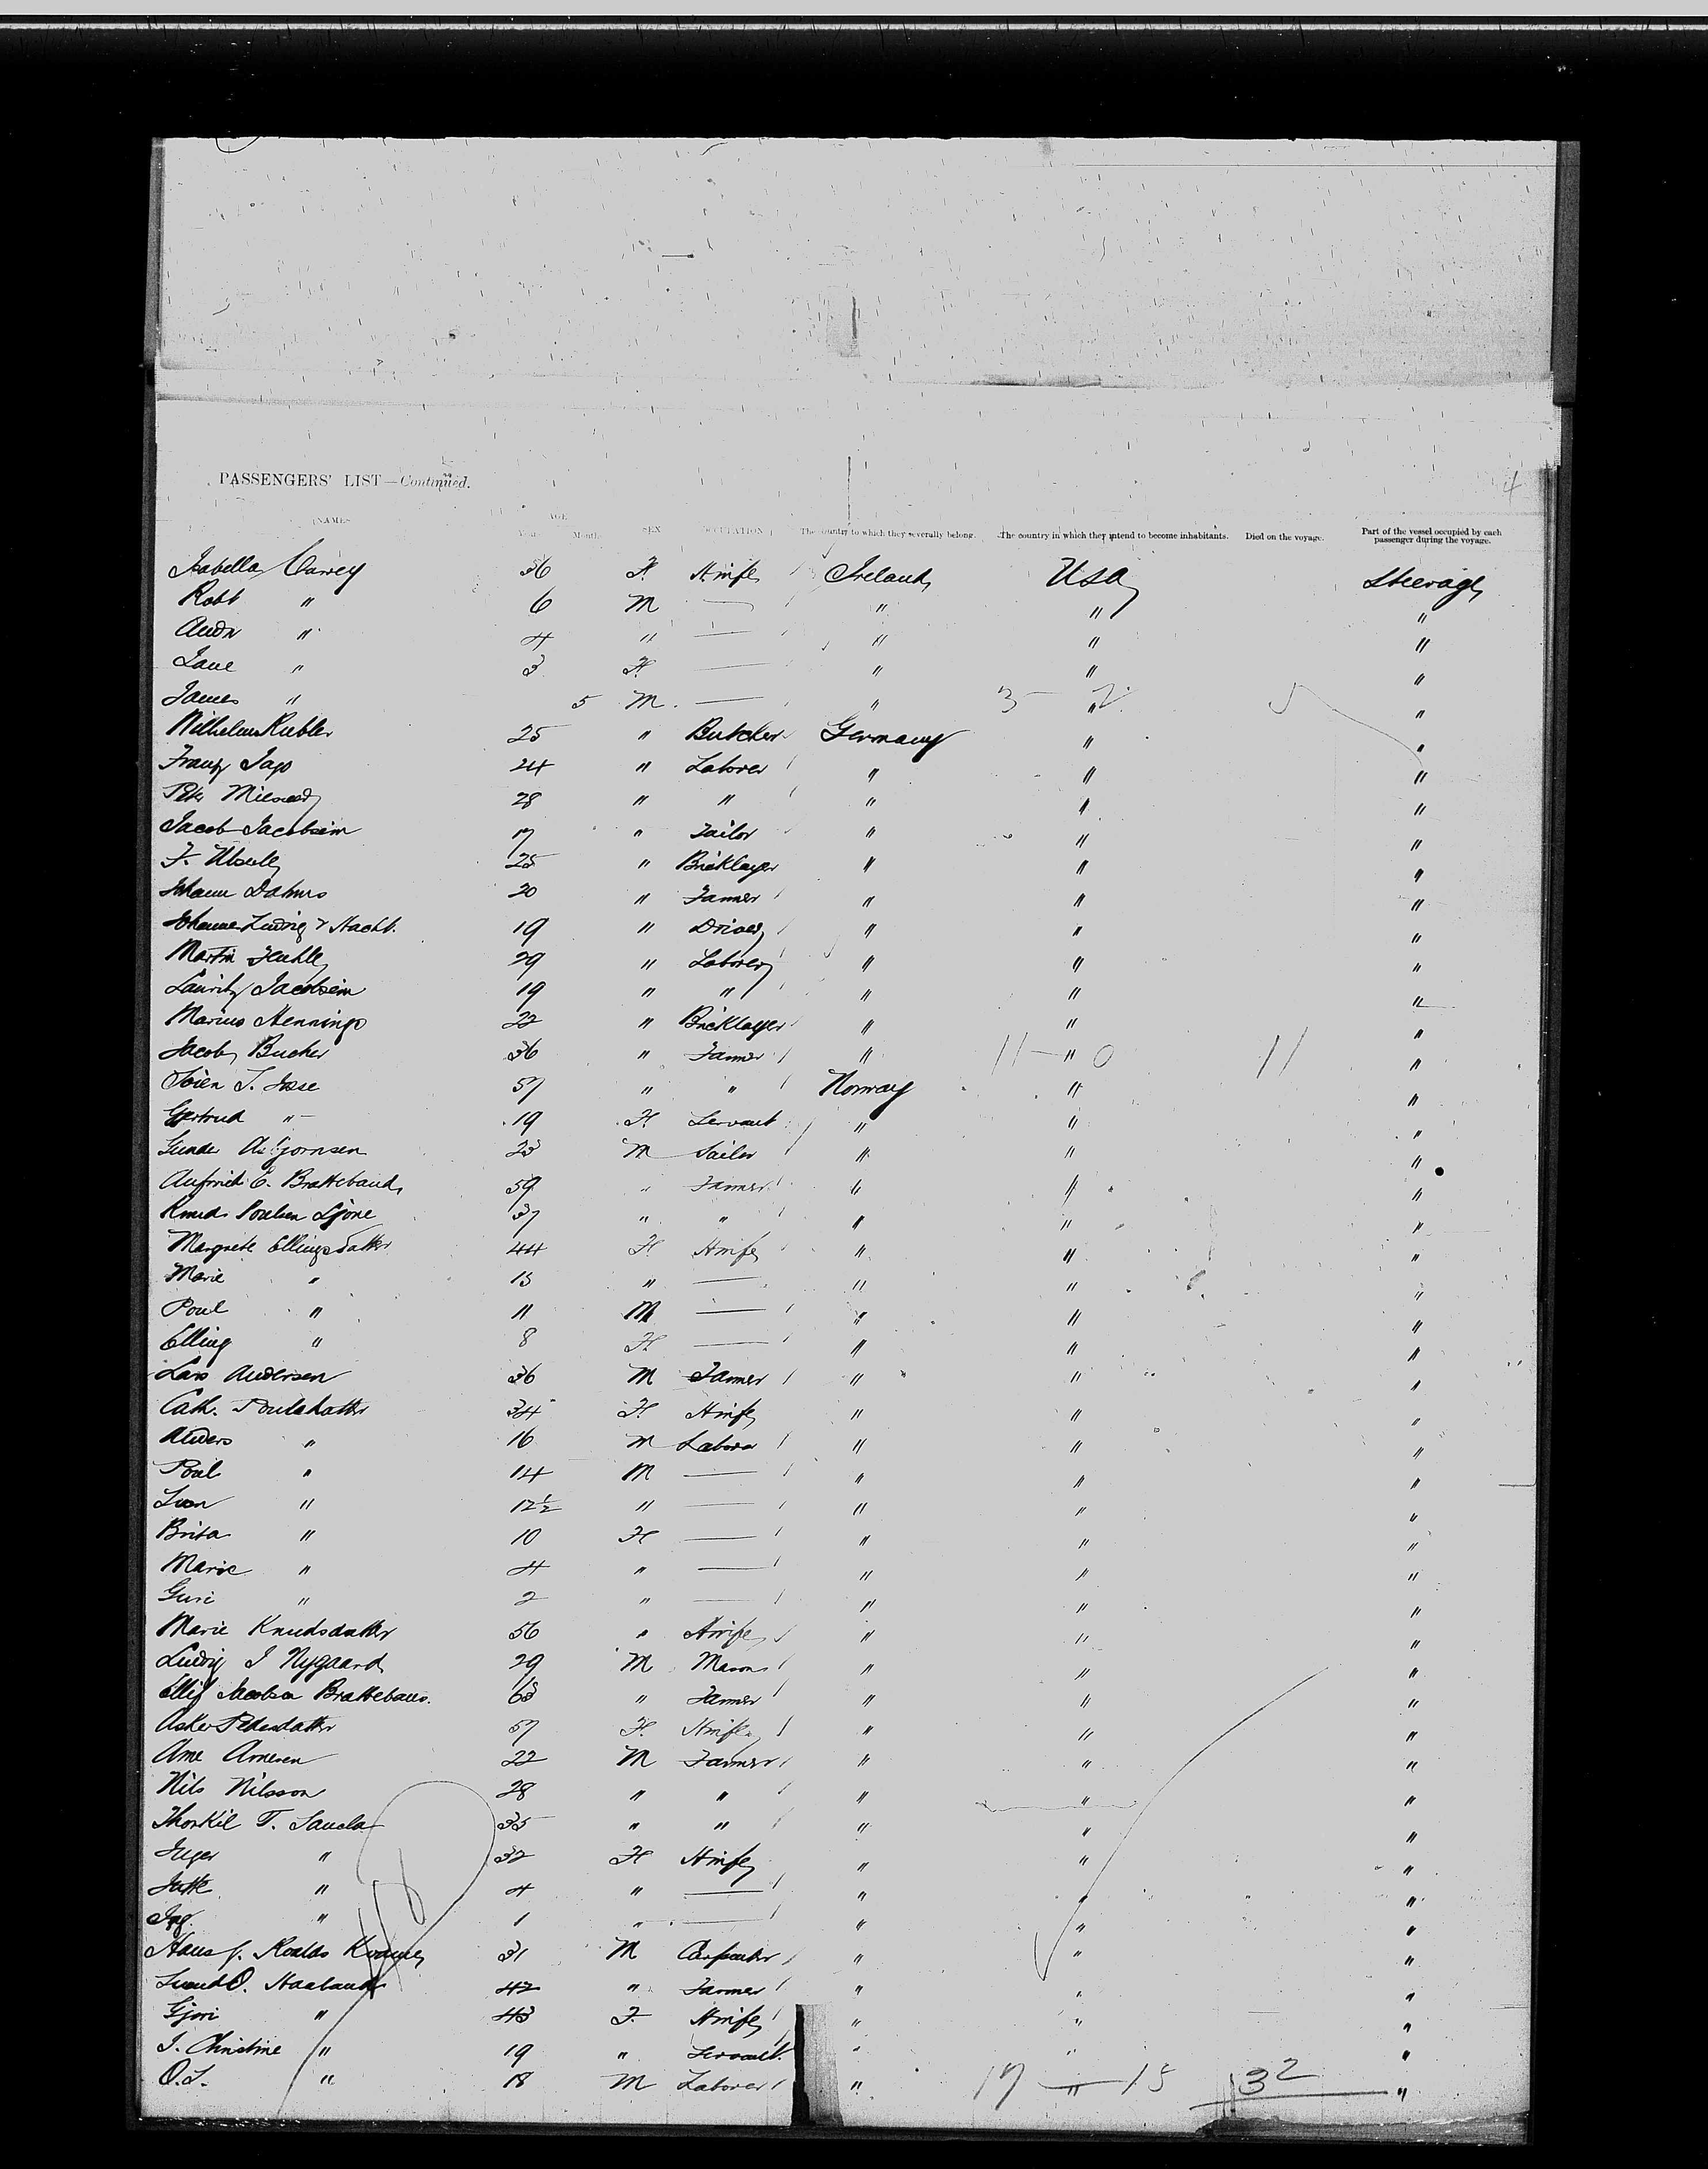 4
PASSENGERS' LIST—Continued.
NAMES AGE SEX OCCUPATION The country to which they severally belong. The country in which they intend to become inhabitants. Died on the voyage. Part of the vessel occupied by each passenger during the voyage.
Years Months
Isabella 36 F. Hwife Ireland USA Steerage
Robt " 6 M — " " "
Andw " 4 " — " " "
Jane " 3 F. — " " "
James " 5 M. — " " "
3 2 5
Wilhelm Kubler 25 " Butcher Germany " "
Franz Jago 24 " Laborer " " "
Peter 28 " " " " "
Jacob Jacobsein 17 " Tailor " " "
F. 25 " Bricklayer " " "
Johann Dahms 20 " Farmer " " "
Johannes Ludwig 19 " Driver " " "
Martin 29 " Laborer " " "
Lauritz Jacobsein 19 " " " " "
Marius Hennings 22 " Bricklayer " " "
Jacob Bucher 36 " Farmer " " "
11 — 0 11
57 " " Norway " "
Gertrud " 19 F. Servant " " "
Gunder Asbjornsen 23 M Sailor " " "
E. Brattebaud 59 " Farmer " " "
Knud Poulsen Gjone 37 " " " " "
Margrete Ellingsdatter 44 F Hwife " " "
Marie " 13 " — " " "
Poul " 11 M — " " "
Elling " 8 F — " " "
Lars Andersen 36 M Farmer " " "
Cath. Poulsdatter 34 F Hwife " " "
Anders " 16 M Laborer " " "
Poul " 14 M — " " "
" 12½ " — " " "
Brita " 10 F — " " "
Marie " 4 " — " " "
Guri " 2 " — " " "
Marie Knudsdatter 56 " Hwife " " "
Ludvig J Nygaard 29 M Mason " " "
Ellif Jacobsen 63 " Farmer " " "
Pedersdatter 57 F. Hwife " " "
Arne Arnesen 22 M Farmer " " "
Nils Nilsson 28 " " " " "
Thorkil T. 35 " " " " "
Inger " 32 F Hwife " " "
" 4 " — " " "
" 1 " — " " "
Hans J. 31 M Carpenter " " "
O. Haaland 42 " Farmer " " "
Gjori " 43 F Hwife " " "
J. Christine " 19 " Servant. " " "
" 18 M Laborer " " "
17 — 15 32